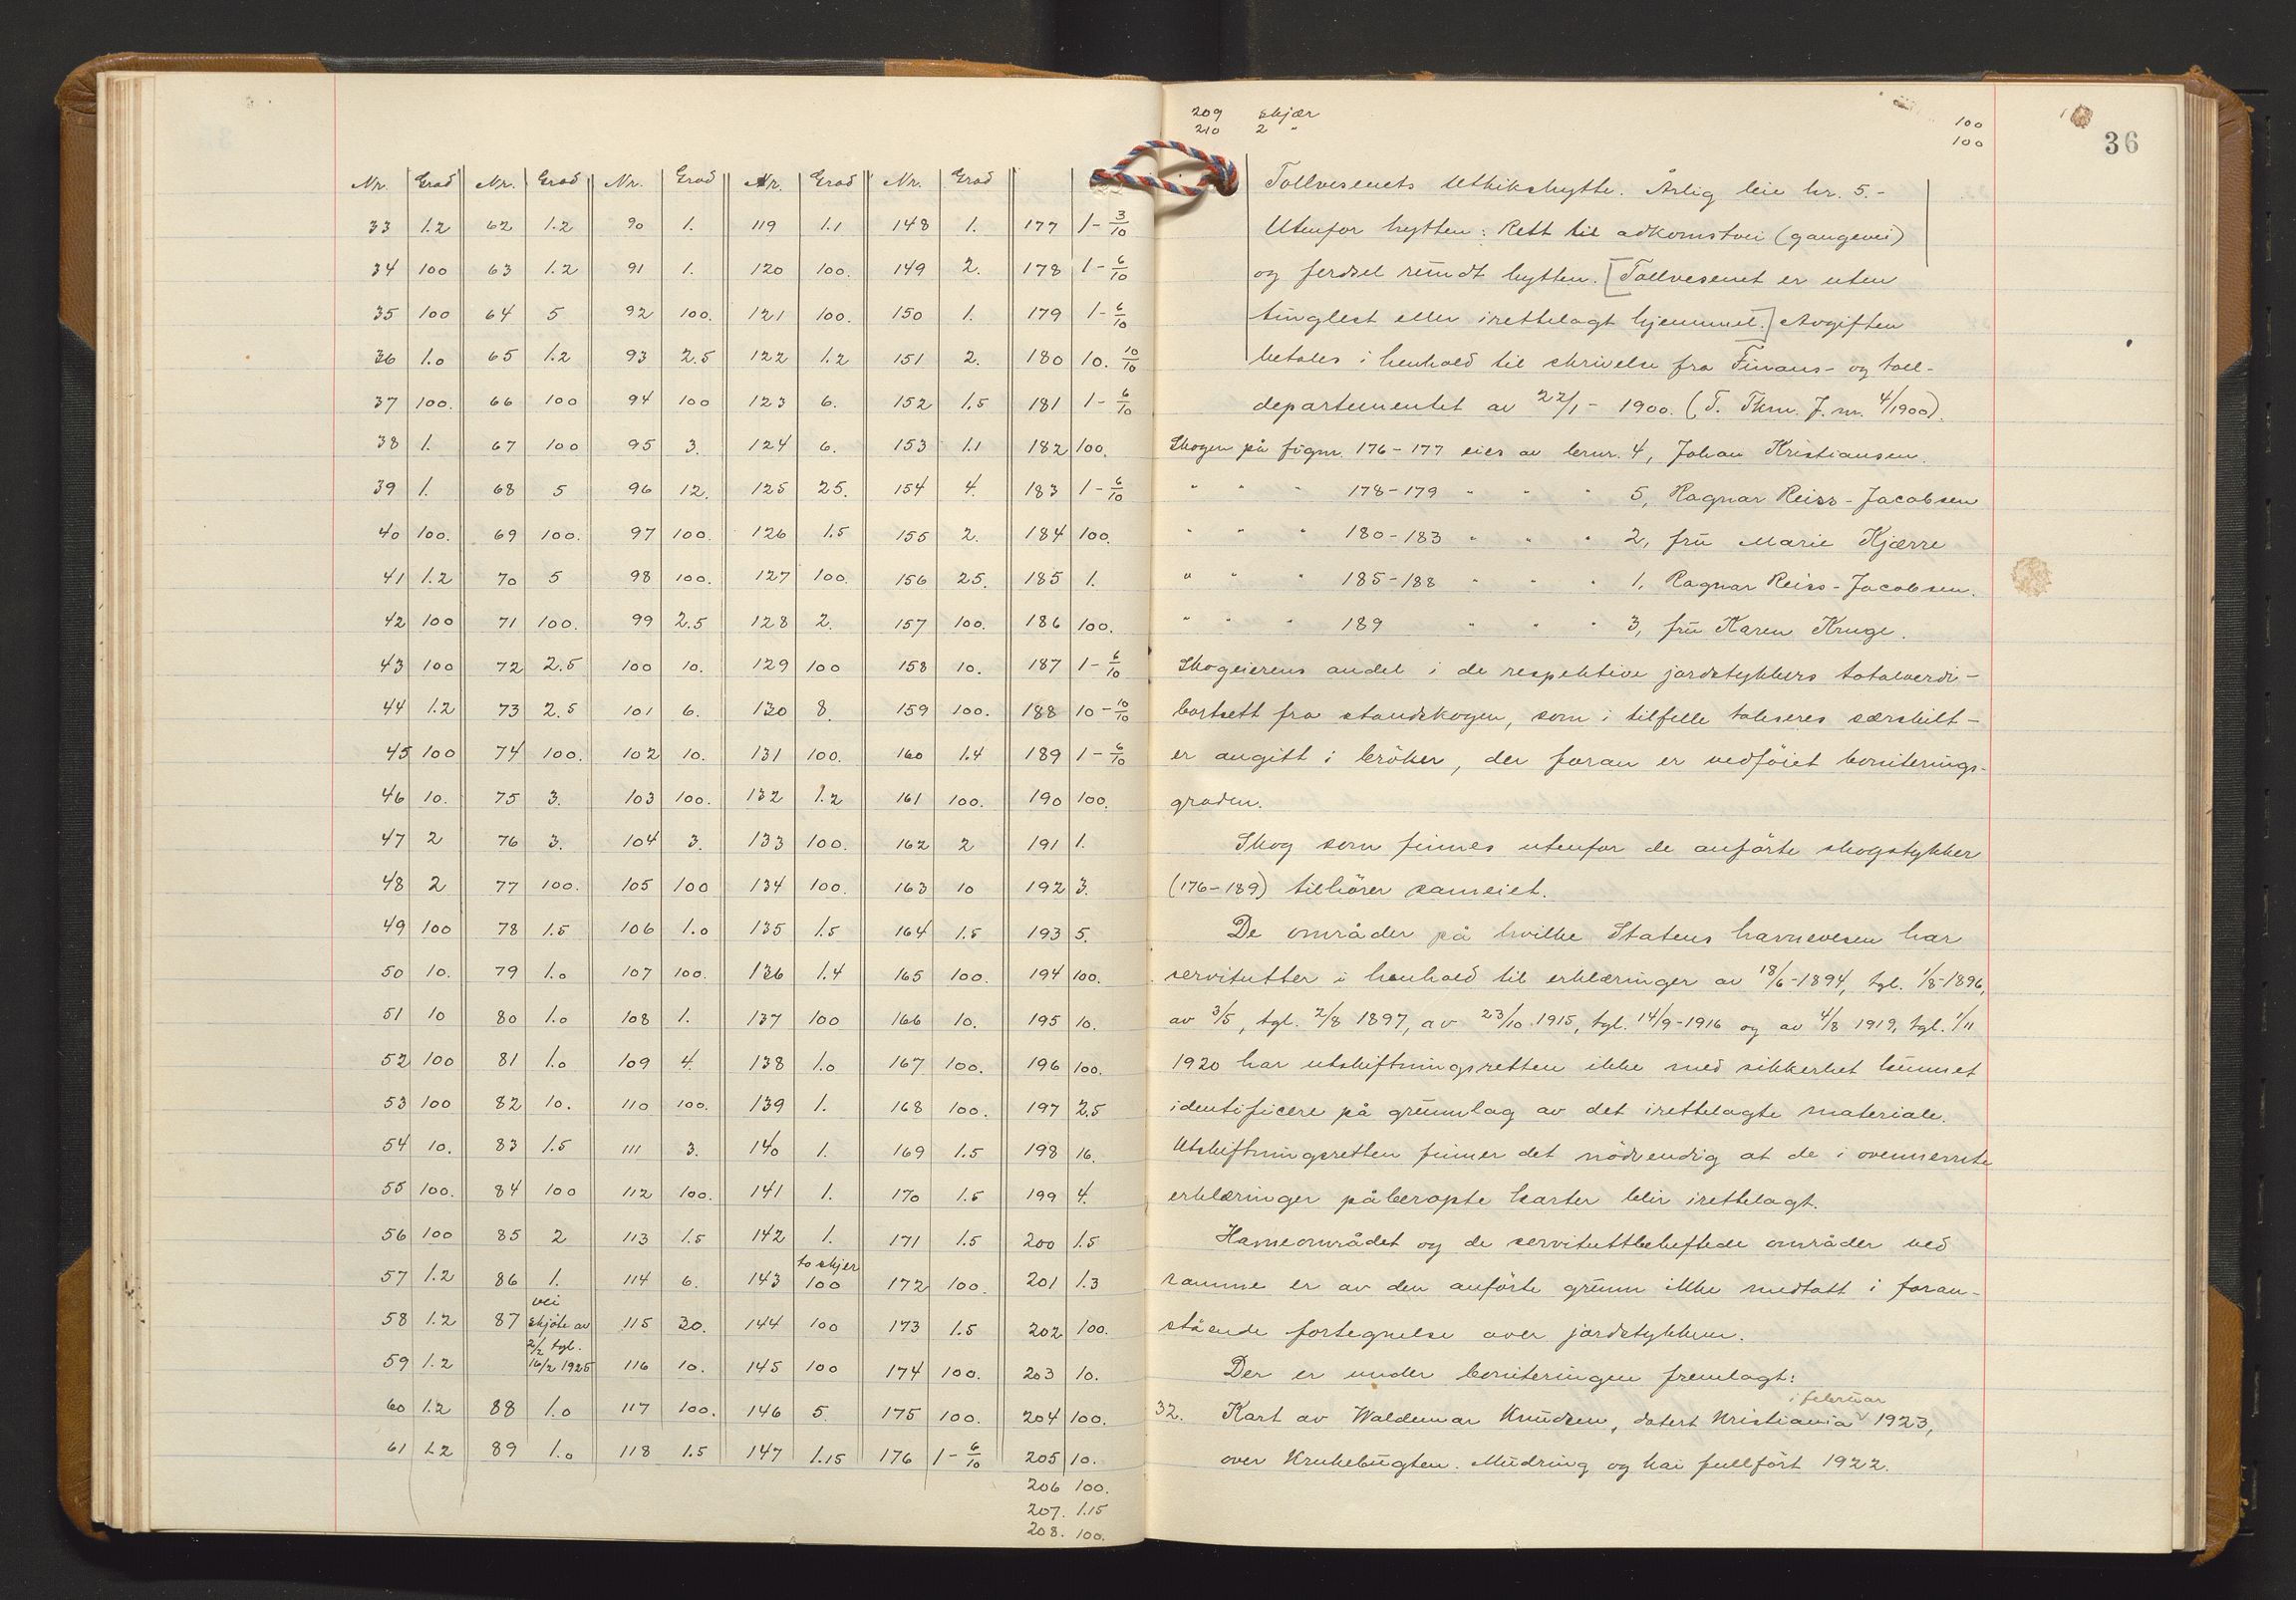 Nr. Grad Nr. Grad Nr. Grad Nr. Grad Nr. Grad
33 1.2 62 1.2 90 1. 119 1.1 148 1. 177 1-3/10
34 100 63 1.2 91 1. 120 100. 149 2. 178 1-6/10
35 100 64 5 92 100. 121 100. 150 1. 179 1-6/10
36 1.0 65 1.2 93 2.5 122 1.2 151 2. 180 10. 10/10
37 100. 66 100 94 100 123 6. 152 1.5 181 1-6/10
38 1. 67 100 95 3. 124 6. 153 1.1 182 100.
39 1. 68 5 96 12. 125 25. 154 4. 183 1-6/10
40 100. 69 100. 97 100. 126 1.5 155 2. 184 100.
41 1.2 70 5 98 100. 127 100. 156 25. 185 1.
42 100 71 100. 99 2.5 128 2. 157 100. 186 100.
43 100 72 2.5 100 10. 129 100 158 10. 187 1-6/10
44 1.2 73 2.5 101 6. 130 8. 159 100. 188 10-10/10
45 100 74 100. 102 10. 131 100. 160 1.4 189 1-6/10
46 10. 75 3. 103 100. 132 1.2 161 100. 190 100.
47 2 76 3. 104 3. 133 100. 162 2 191 1.
48 2 77 100. 105 100 134 100. 163 10 192 3.
49 100 78 1.5 106 1.0 135 1.5 164 1.5 193 5.
50 10. 79 1.0 107 100. 136 1.4 165 100. 194 100.
51 10 80 1.0 108 1. 137 100 166 10. 195 10.
52 100 81 1.0 109 4. 138 1.0 167 100. 196 100.
53 100 82 10. 110 100. 139 1. 168 100. 197 2.5
54 10. 83 1.5 111 3. 140 1. 169 1.5 198 16.
55 100. 84 100 112 100. 141 1. 170 1.5 199 4.
56 100 85 2 113 1.5 142 1. 171 1.5 200 1.5
57 1.2 86 1. 114 6. 143 to skjer 100 172 100. 201 1.3
58 1.2 87 vei skjöte av 115 30. 144 100 173 1.5 202 100.
59 1.2 2/2 tgl. 16/2 1925 116 10. 145 100 174 100. 203 10.
60 1.2 88 1.0 117 100. 146 5. 175 100. 204 100.
61 1.2 89 1.0 118 1.5 147 1.15 176 1-6/10 205 10.
206 100.
207. 1.15
208. 100.
209 skjær 100
210 2 " 100
36
Tollvesenets utkikshytte. Årlig leie kr. 5.-
Utenfor hytten: Rett til adkomstvei (gangevei)
og ferdsel rundt hytten. [Tollvesenet er uten
tinglest eller irettelagt hjemmel.] Avgiften
betales i henhold til skrivelse fra Finans- og toll-
departementet av 22/1- 1900. (T. Thm. J. nr. 4/1900).
Skogen på fignr. 176-177 eies av brnr. 4, Johan Kristiansen.
" " " 178-179 " " " 5, Ragnar Reiss-Jacobsen
" " " 180-183 " " " 2, fru Marie Kjærre
" " " 185-188 " " " 1, Ragnar Reiss-Jacobsen.
" " " 189 " " " 3, fru Karen Kruge.
Skogeierens andel i de respektive jordstykkers totalverdi -
bortsett fra standskogen, som i tilfelle takseres særskilt -
er angitt i bröker, der foran er vedföiet boniterings-
graden.
Skog som finnes utenfor de anförte skogstykker
(176-189) tilhörer sameiet.
De områder på hvilke Statens havnevesen har
servitutter i henhold til erklæringer av 18/6-1894, tgl. 1/8-1896,
av 3/5, tgl. 2/8 1897, av 23/10 1915, tgl. 14/9-1916 og av 4/8 1919, tgl. 1/11
1920 har utskiftningsretten ikke med sikkerhet kunnet
identificere på grunnlag av det irettelagte materiale.
Utskiftningsretten finner det nödvendig at de i ovennevnte
erklæringer påberopte karter blir irettelagt.
Havneområdet og de servituttbeheftede områder ved
samme er av den anförte grunn ikke medtatt i foran-
stående fortegnelse over jordstykkene.
Der er under boniteringen fremlagt:
i februar
32. Kart av Waldemar Knudsen, datert Kristiania 1923,
over Krukebugten. Mudring og kai fullfört 1922.